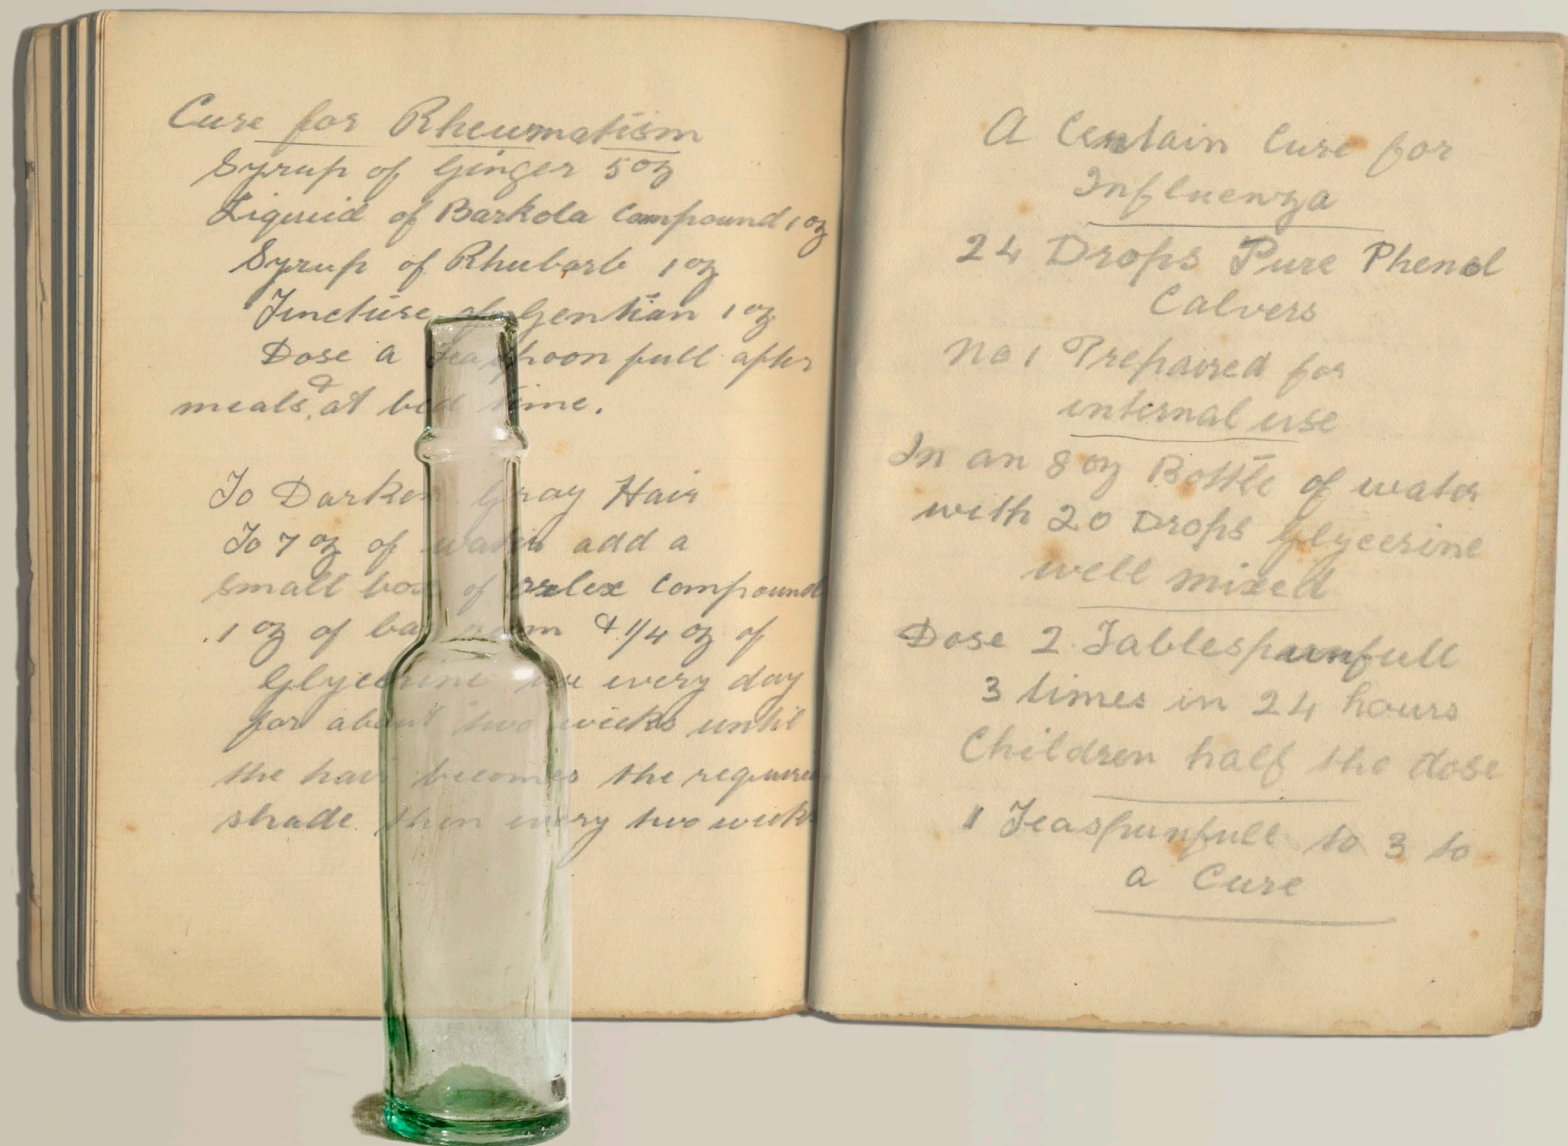 Cure for Rheumatism
Syrup of Ginger 5 oz
Liquid of Barkola Compound 1 oz
Syrup of Rhubarb 1 oz
Tincture of Gentian 1 oz
Dose a teaspoon full after
meals, & at bed time.
To Darken Gray Hair
To 7 oz of water add a
small box of orlex Compound
1 oz of bay rum & 1/4 oz of
Glycerine use every day
for about two weeks until
the hair becomes the required
shade. then every two weeks
A Certain Cure for
Influenza
24 Drops Pure Phenol
Calvers
No 1 Prepaired for
internal use
In an 8 oz Bottle of water
with 20 Drops Glycerine
well mixed
Dose 2 Tablespunfull
3 times in 24 hours
Children half the dose
1 Teaspunfull to 3 to
a Cure